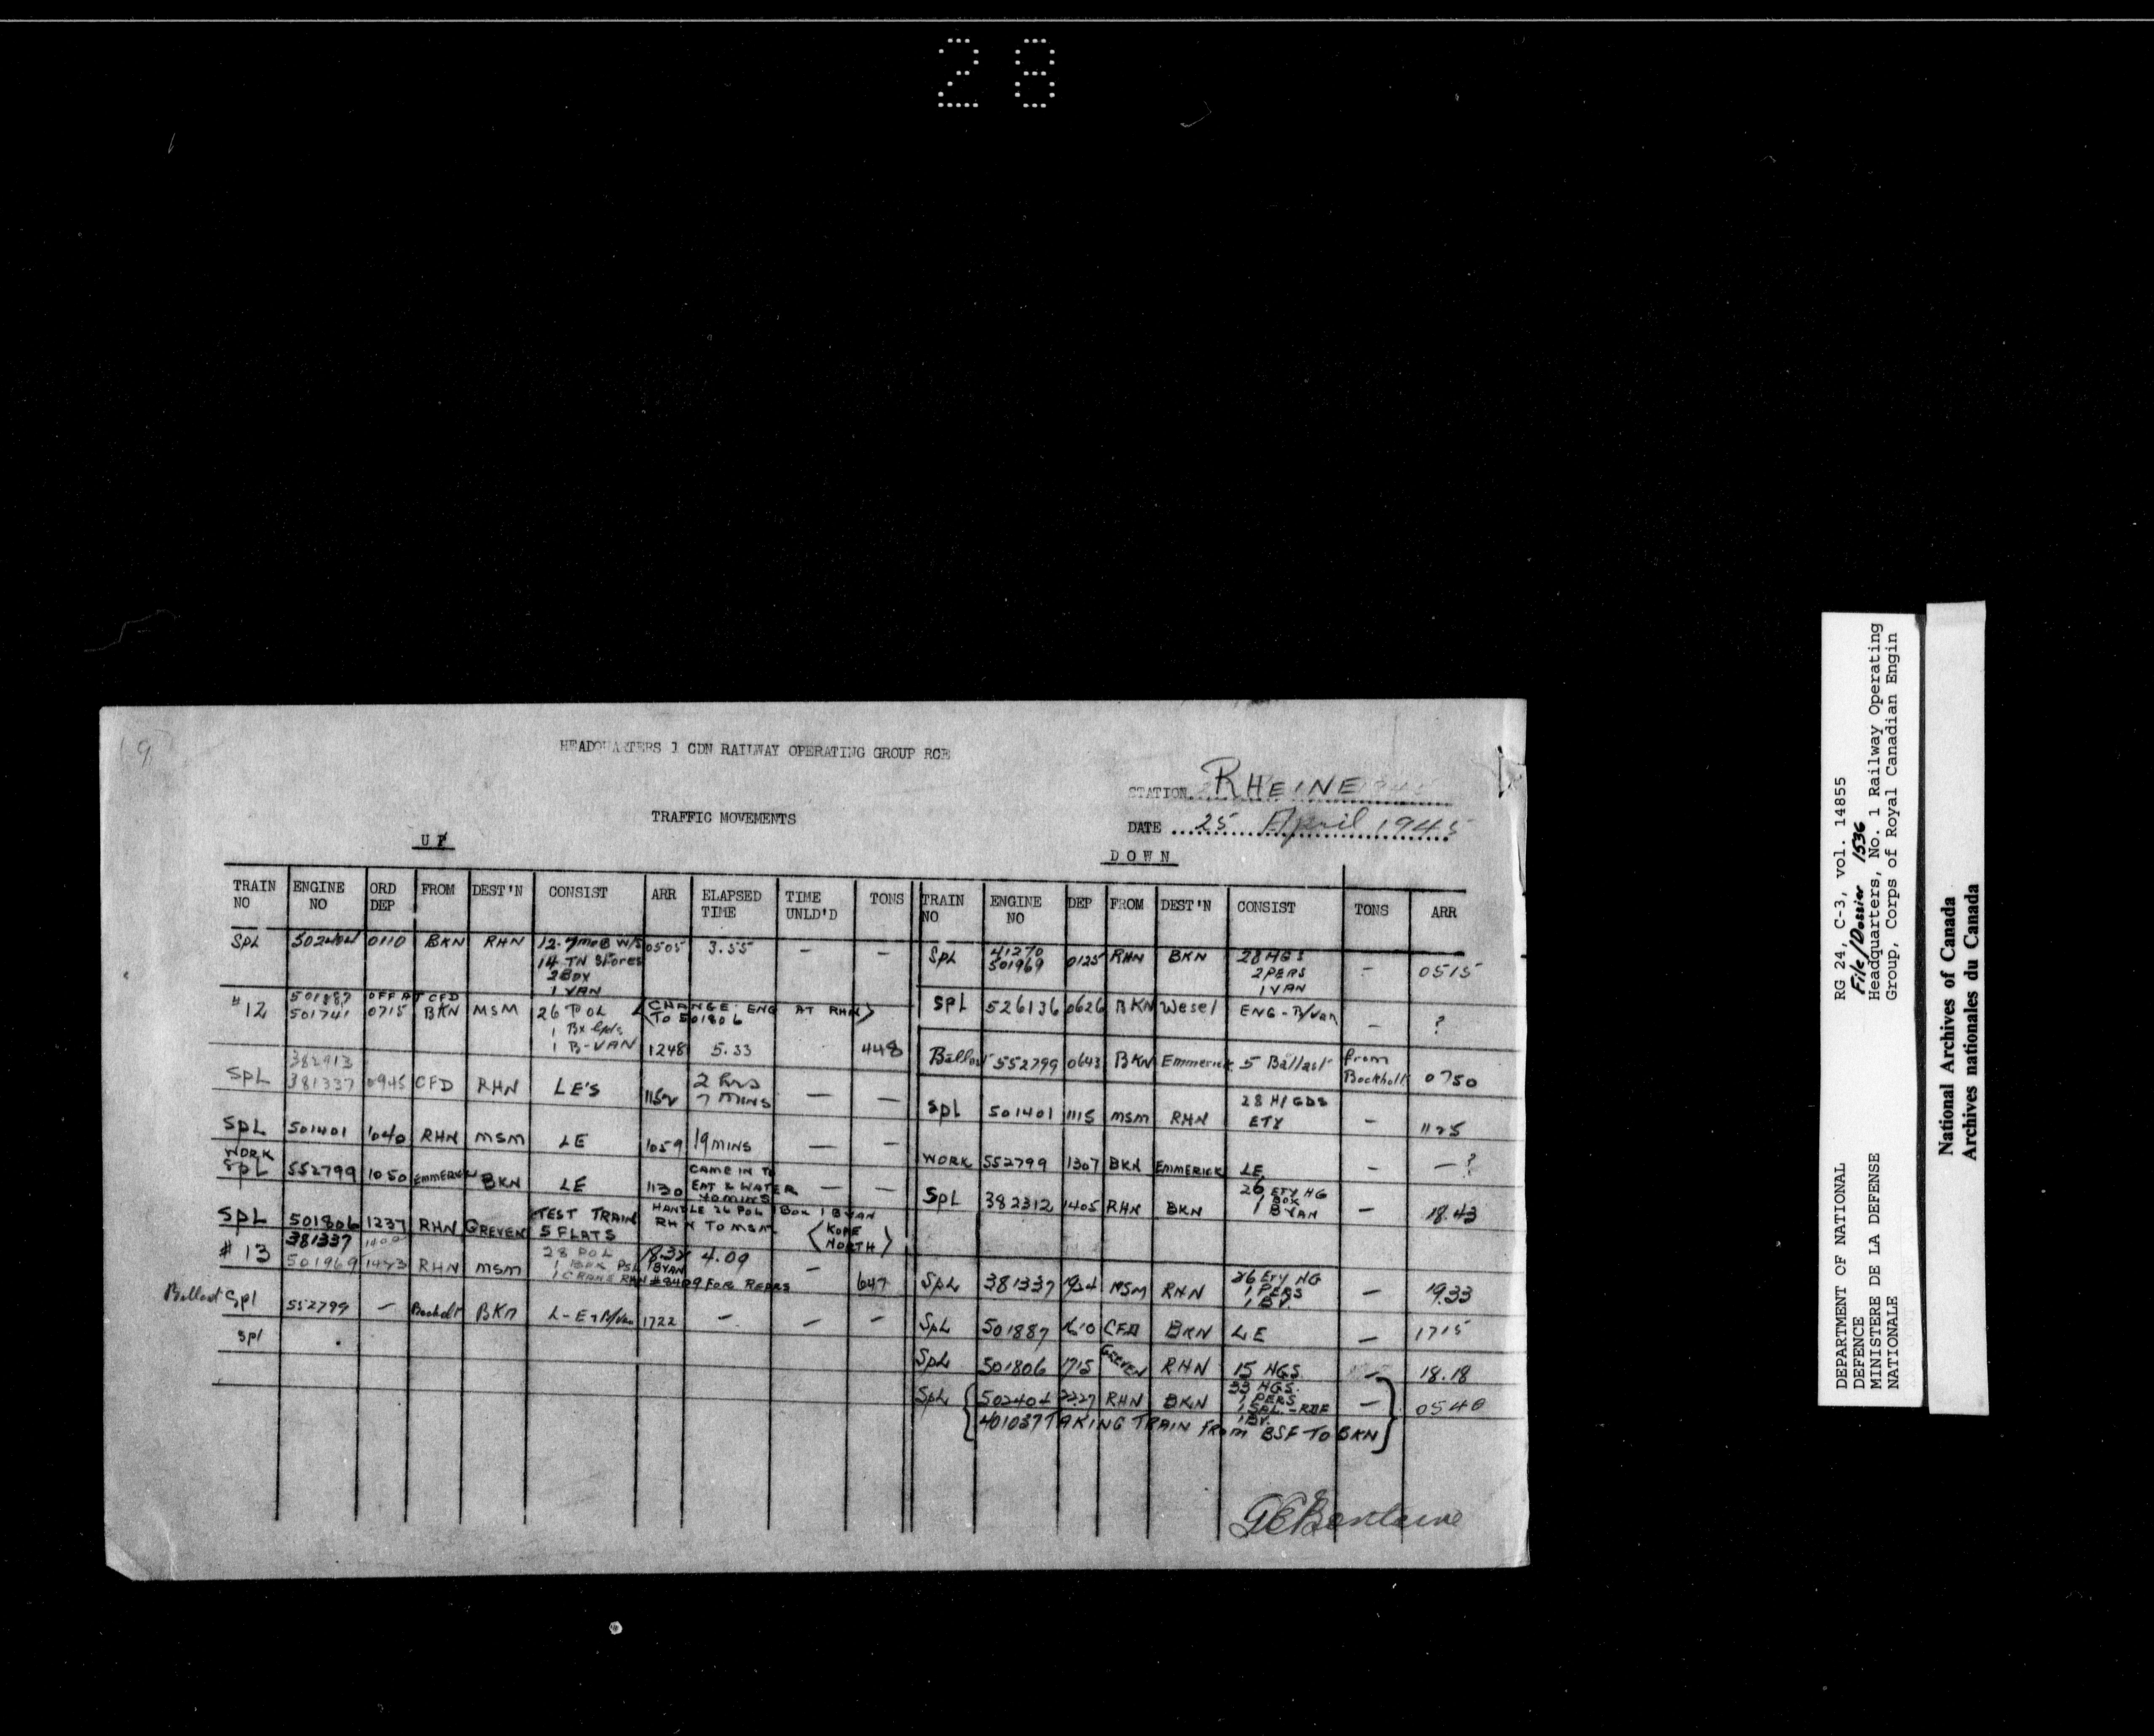 28
HEADQUARTERS 1 CDN RAILWAY OPERATING GROUP RCE
STATION RHEINE
TRAFFIC MOVEMENTS
DATE 25 April 1945
UP
DOWN
TRAIN NO ENGINE NO ORD DEP FROM DEST'N CONSIST ARR ELAPSED TIME TIME UNLD'D TONS
SPL 502404 0110 BKN RHN 12 W/S 0505 3.55 — —
14 TN Stores
2 BOX
1 VAN
501887 OFF AT CFD
#12 501741 0715 BKN MSM 26 POL <CHANGE ENG AT RHN>
TO 501806
1 Bx
1 B-VAN 1248 5.33 448
382913
SPL 381337 0945 CFD RHN LE'S 1152 2 hrs 7 MINS — —
SPL 501401 1040 RHN MSM LE 1059 19 MINS — —
WORK
SPL 552799 1050 EMMERICK BKN LE 1130 CAME IN TO EAT & WATER 40 MINS — —
SPL 501806 1237 RHN GREVEN TEST TRAIN 5 FLATS HANDLE 26 POL 1 BOX 1 BVAN
RHN TO MSM <KOPE NORTH>
381337 1400
#13 501969 1423 RHN MSM 28 POL 18.32 4.09 — 647
1 BOX 1 BVAN
1 CRANE RHN #8409 FOR REPRS
Ballast Spl 552799 — Bocholt BKN L-E & B/Van 1722 — — —
Spl
TRAIN NO ENGINE NO DEP FROM DEST'N CONSIST TONS ARR
SPL 41270 501969 0125 RHN BKN 28 HGS — 0515
2 PERS
1 VAN
SPL 526136 0626 BKN Wesel ENG-B/Van — ?
Ballast 552799 0643 BKN Emmerick 5 Ballast from Bockholt 0750
SPL 501401 1115 MSM RHN 28 H/GDS ETY — 1125
WORK 552799 1307 BKN EMMERICK LE — — ?
SPL 382312 1405 RHN BKN 26 ETY HG — 18.43
1 BOX
1 BVAN
SPL 381337 MSM RHN 26 Ety HG — 19.33
1 PERS
1 BV.
SPL 501887 1610 CFD BKN LE — 1715
SPL 501806 1715 GREVEN RHN 15 HGS — 18.18
SPL 502404 2227 RHN BKN 33 HGS. — 0540
1 PERS
1 BV.
401037 TAKING TRAIN FROM BSF TO BKN
RG 24, C-3, vol. 14855
File/Dossier 1536
Headquarters, No. 1 Railway Operating
Group, Corps of Royal Canadian Engin
DEPARTMENT OF NATIONAL
DEFENCE
MINISTERE DE LA DEFENSE
NATIONALE
National Archives of Canada
Archives nationales du Canada